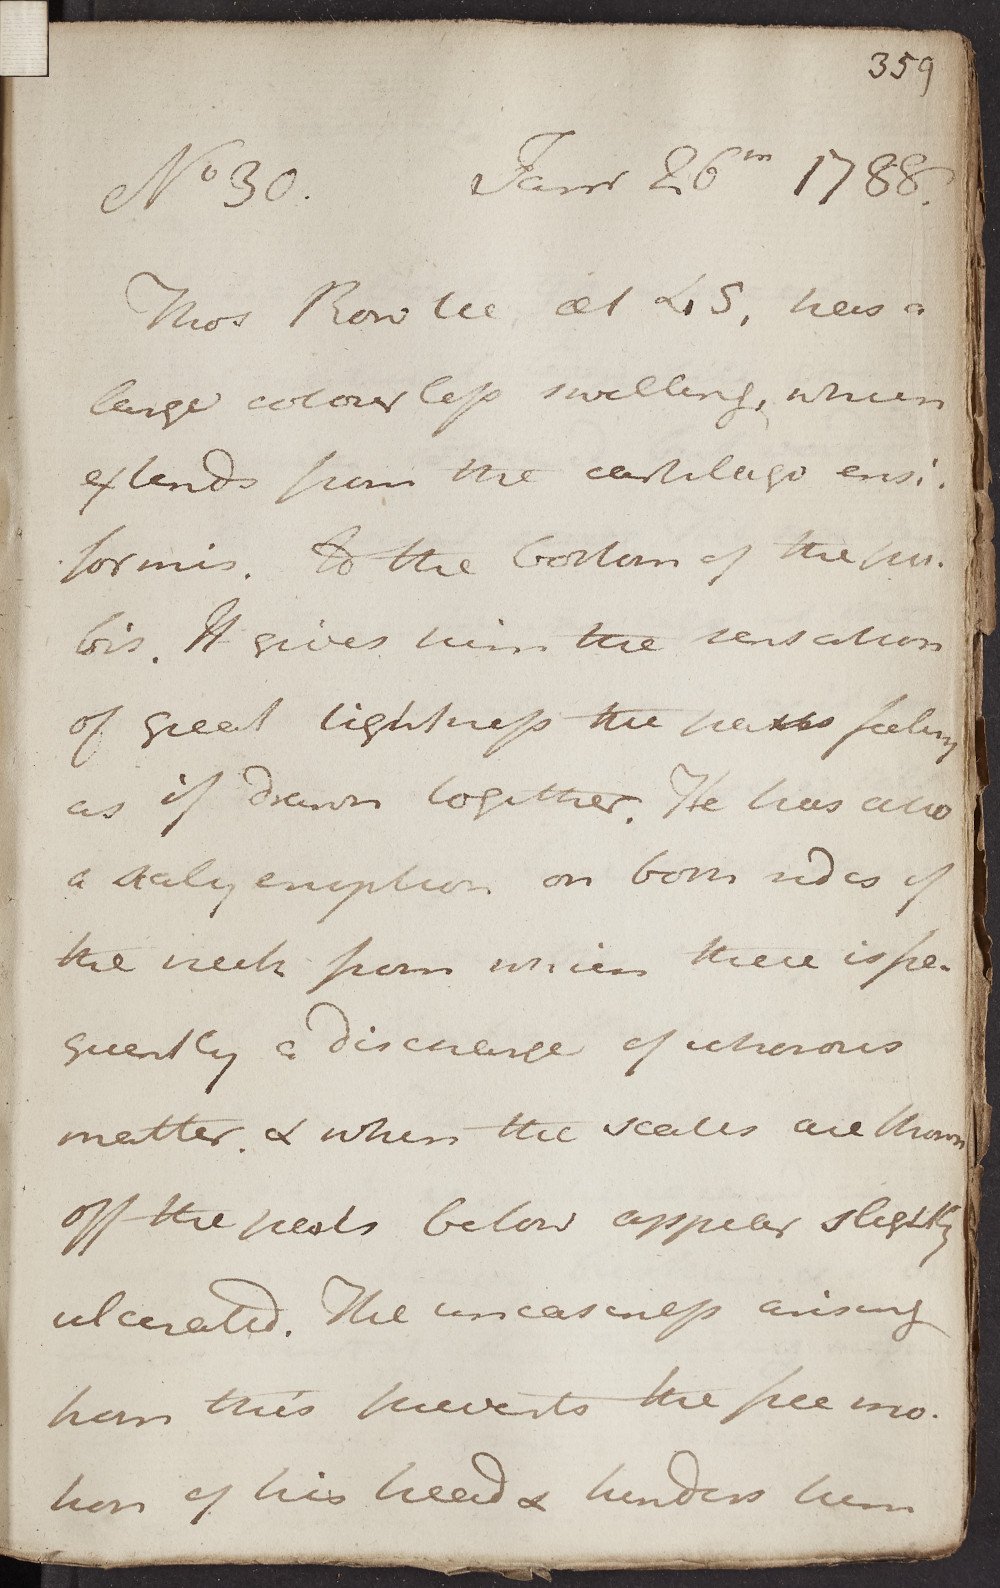 359
No 30. Janr 26th 1788.
Thos Row lee æt 45, has a
large colourless swelling, which
extends from the cartilago ensi-
formis. to the bottom of the pu-
bis. It gives him the sensation
of great tightness the parts feeling
as if drawn together. He has also
a scaly eruption on both sides of
the neck from which there is fre-
quently a discharge of ichorous
matter. & when the scales are thrown
off the parts below appear slightly
ulcerated. The uneasiness arising
from this prevents the free mo-
tion of his head & hinders him